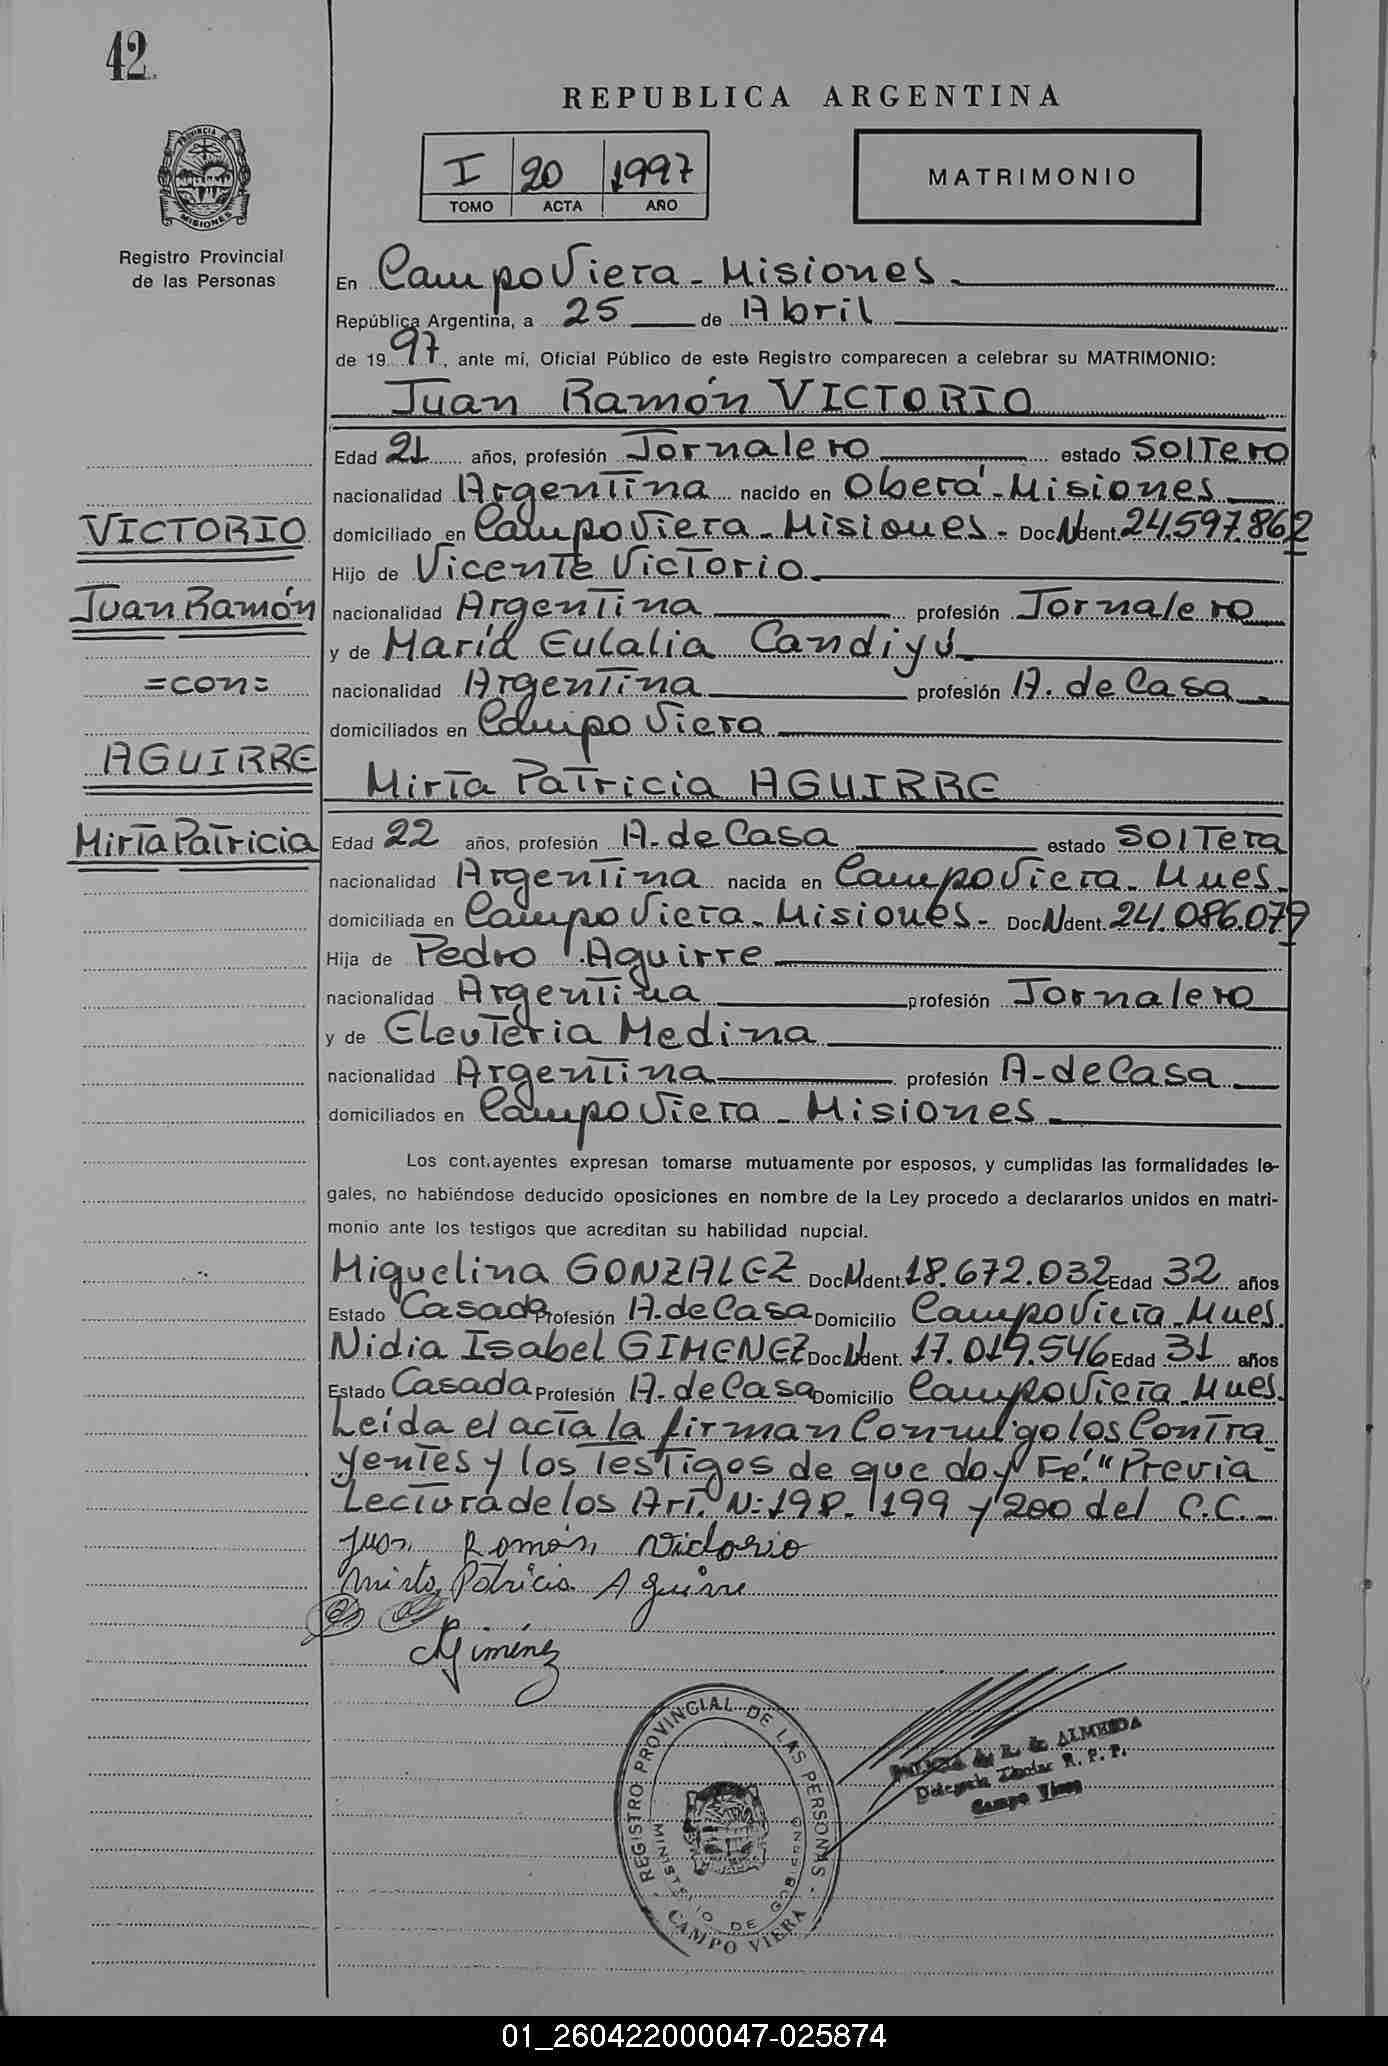 42.
REPUBLICA ARGENTINA
PROVINCIA DE
MISIONES
I 20 1997
TOMO ACTA AÑO
MATRIMONIO
Registro Provincial
de las Personas
En Campo Viera - Misiones -
República Argentina, a 25 de Abril
de 1997, ante mí, Oficial Público de este Registro comparecen a celebrar su MATRIMONIO:
Juan Ramón VICTORIO
Edad 21 años, profesión Jornalero estado Soltero
nacionalidad Argentina nacido en Oberá - Misiones
VICTORIO
domiciliado en Campo Viera - Misiones - Doc. N Ident. 24.597.862
Hijo de Vicente Victorio
Juan Ramón
nacionalidad Argentina profesión Jornalero
y de María Eulalia Candiyú
=con=
nacionalidad Argentina profesión A. de Casa
domiciliados en Campo Viera
AGUIRRE
Mirta Patricia AGUIRRE
Mirta Patricia
Edad 22 años, profesión A. de Casa estado Soltera
nacionalidad Argentina nacida en Campo Viera - Mnes.
domiciliada en Campo Viera - Misiones - Doc. N Ident. 24.086.079
Hija de Pedro Aguirre
nacionalidad Argentina profesión Jornalero
y de Eleuteria Medina
nacionalidad Argentina profesión A- de Casa
domiciliados en Campo Viera - Misiones
Los contrayentes expresan tomarse mutuamente por esposos, y cumplidas las formalidades le-
gales, no habiéndose deducido oposiciones en nombre de la Ley procedo a declararlos unidos en matri-
monio ante los testigos que acreditan su habilidad nupcial.
Miguelina GONZALEZ Doc. N Ident. 18.672.032 Edad 32 años
Estado Casada Profesión A. de Casa Domicilio Campo Viera - Mnes.
Nidia Isabel GIMENEZ Doc. N Ident. 17.019.546 Edad 31 años
Estado Casada Profesión A. de Casa Domicilio Campo Viera - Mnes.
Leída el acta la firman Conmigo los Contra
yentes y los Testigos de que doy Fe." Previa
Lectura de los Art. N: 198 - 199 y 200 del C.C. -
Juan Ramón Victorio
Mirta Patricia Aguirre
Giménez
REGISTRO PROVINCIAL DE LAS PERSONAS
MINISTERIO DE GOBIERNO
CAMPO VIERA
de R. de ALMEIDA
Delegada Titular R. P. P.
Campo Viera
01_260422000047-025874